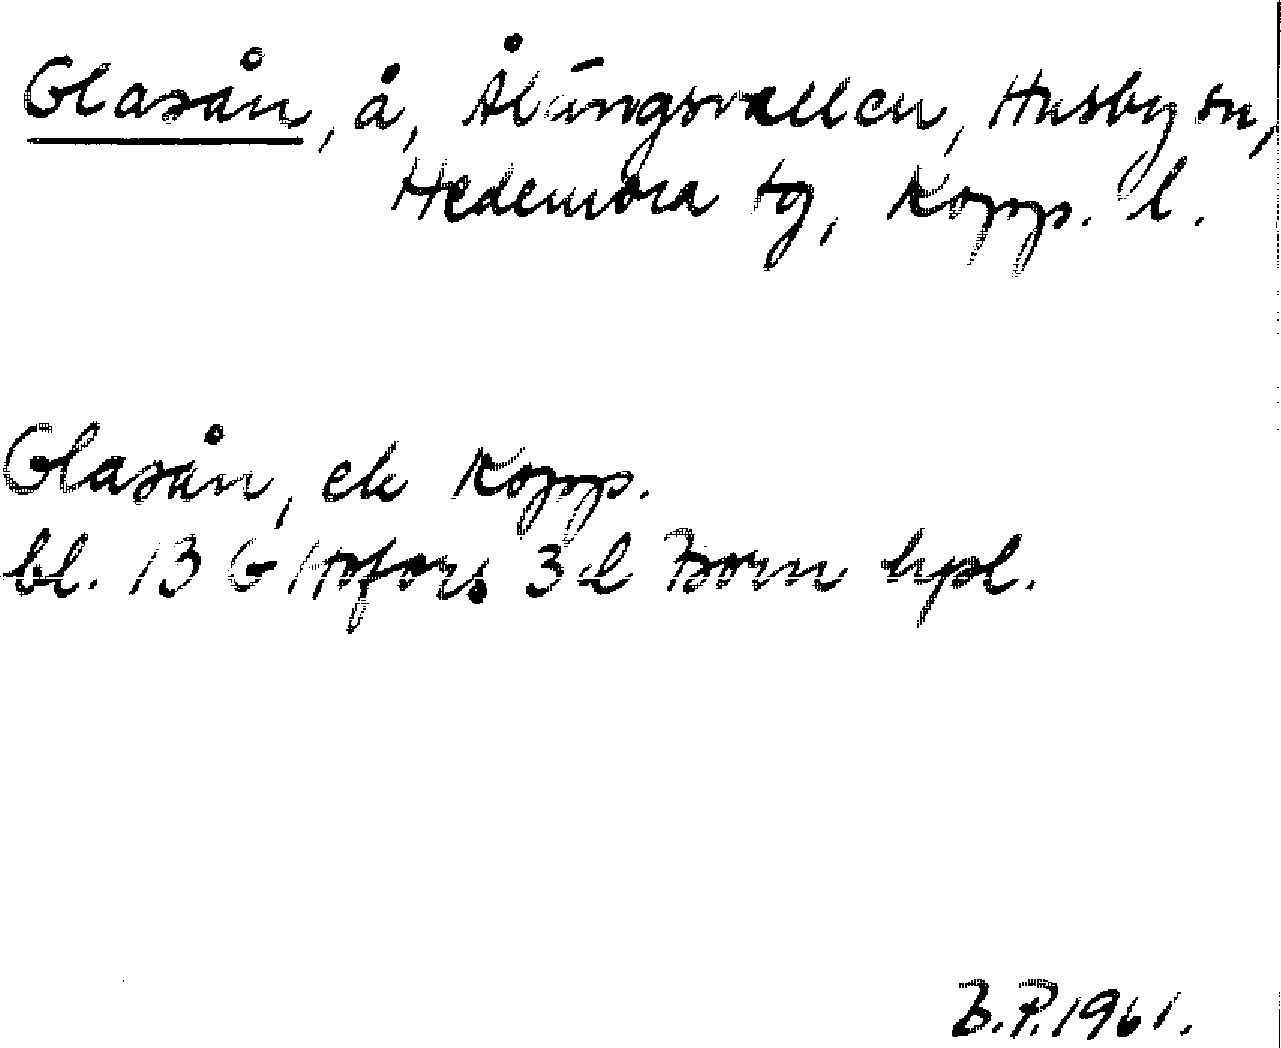 Glasån, å, Ålängsvallen, Husby sn,
Hedemora tg, Kopp. l.
Glasån, ek Kopp.
bl. 13 G Hofors 3 d Born upl.
B.P. 1961.